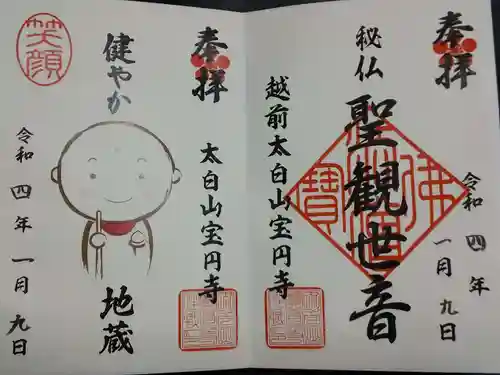 奉拝
秘仏
聖観世音
越前太白山宝円寺
令和四年一月九日
奉拝
太白山宝円寺
健やか
地蔵
笑顔
令和四年一月九日